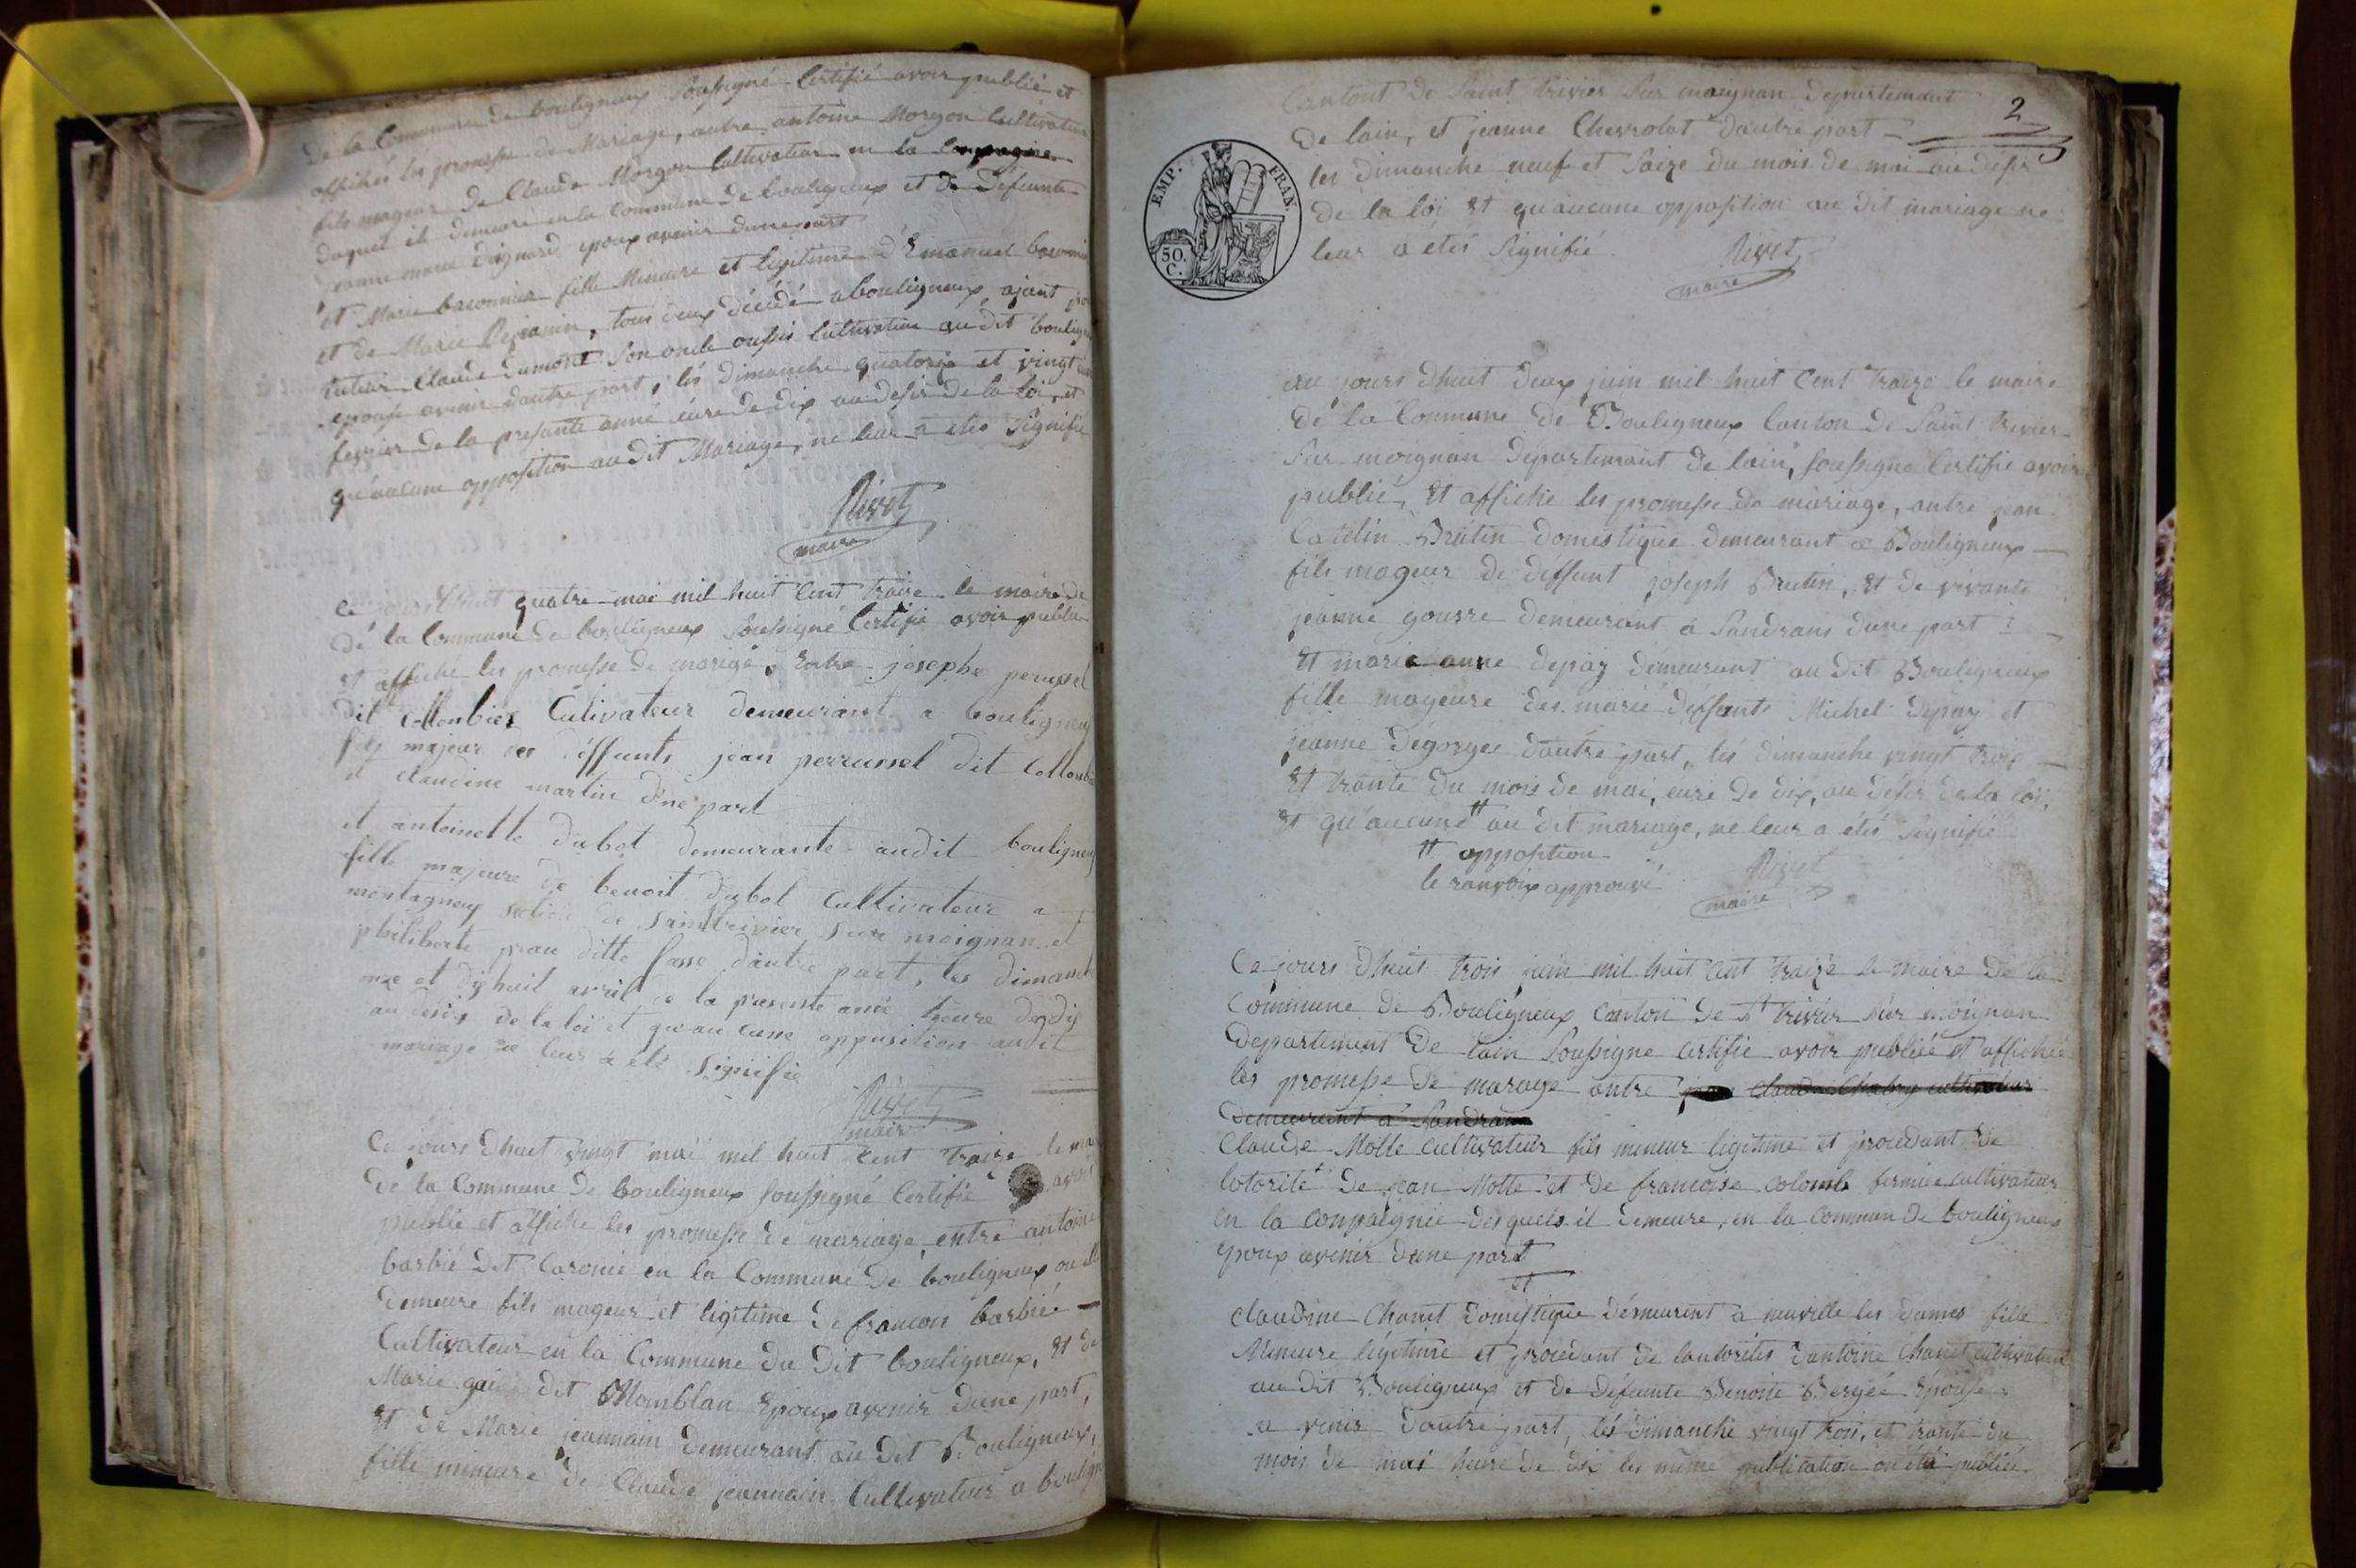 de la Commune de bouligneux Soussigné Certifié avoir publié et
affiché les promesse de Mariage, antre antoine Morgon Cultivateur
fils mageur de Claude Morgon Cultivateur en la Compagnie
duquel il demeure en la Commune de bouligneux et de defeunte
jeanne marie époux avenir dune part
et Marie baconnier fille Mineure et legitime d'Emanuel
et de Marie tous deux décédé a bouligneux, ajant
tuteur Claude Dumont Son oncle aussis Cultivateur au dit
epouse avenir dautre part, lés dimanche quatorze et vingt
fevrier de la presante anné eure de dix au desir de la loi, et
qu'aucune opposition au dit Mariage, ne leur a étés Signifié
Rivet
maire
Ce jours dhuit quatre mai mil huit Cent traize le maire de
dé la Commune de bouligneux Soussigné Certifié avoir publié
et affiché les promesse de marige, Entre josephe perussel
dit Collonbier Cultivateur demeurant a bouligneux
fils majeur des déffunts jean perrussel dit
et claudine martin d'ne part
et antoinette dubot demeurante audit bouligneux
fille majeure de benoit dubot Cultivateur a
montagneux section de Saintrivier Sur moignan et
philiberte ditte dautre part, les dimanche
onze et dixhuit avril de la presente anné heure de dix
au désir de la loi et qu'au cune opposition audit
mariage ne leur a été signifié
Rivet
mair
Ce jours dhuit vingt mai mil huit Cent traize le
de la Commune de bouligneux Soussigné Certifié avoir
publié et affiché les promesse de mariage entre antoine
barbié dit Caronié en la Commune de bouligneux ou il
demeure fils mageur et ligitime de francois barbié
Cultivateur en la Commune du dit bouligneux, Et de
Marie dit Momblan Epoux avenir dune part,
Et de Marie jeannain demeurant au dit Bouligneux,
fille mineure de Claude jeannain Cultivateur a
2
Cantont de Saint trivier Sur moignan departemant
de lain, et jeanne Chevrolat dautre part
les dimanche neuf et Saize du mois de mai au désir
de la loi Et qu'aucune opposition au dit mariage ne
leur a étés Signifié
Rivet
maire
EMP. FRAN
50.
C.
au jours dhuit deux juin mil huit Cent traize le maire
dé la Commune de Bouligneux Canton de Saint trivier
Sur moignan départemant de lain, soussigné Certifié avoir
publié, Et affiché les promesse de mariage, antre jean
Catelin Brutin domestique demeurant a Bouligneux
fils mageur de deffunt joseph Brutin, Et de vivante
jeanne gouvre demeurant à Sandrans dune part
Et marie anne depay demeurant au dit Bouligneux
fille mageure des marié déffunts Michel depay et
jeanne dégorges dautre part, lés dimanche vingt trois
Et trante du mois de mai, eure de dix, au désir de la loi,
Et qu'aucune # au dit mariage, ne leur a étés Signifié
# opposition
le ranvoix approuvé
Rivet
maire
Ce jours dhuit trois juin mil huit Cent traize le maire de la
Commune de Bouligneux Canton de St trivier Sur moignan
departement de lain Soussigne Certifie avoir publiée et affichée
les promesse de marage antre Claude cultivateur
demeurant a Sandrans
Claude Motte Cultivateur fils mineur legitime et procedant de
lotorité de jean Motte et de francoise colomb fermier cultivateur
en la conpaignie desquels il demeure, en la commun de bouligneux
epoux avenir dune part
et
claudine Chanet domestique démeurent a neuville les dames fille
Mineure légitime et procedant de lautorités dantoine Chanet cultivateur
au dit Bouligneux et de défeunte Benoite Bergée Épouse
a venir dautre part, lés dimanche vingt trois, et trante du
mois de mai heure de dix les même publication on été publiée